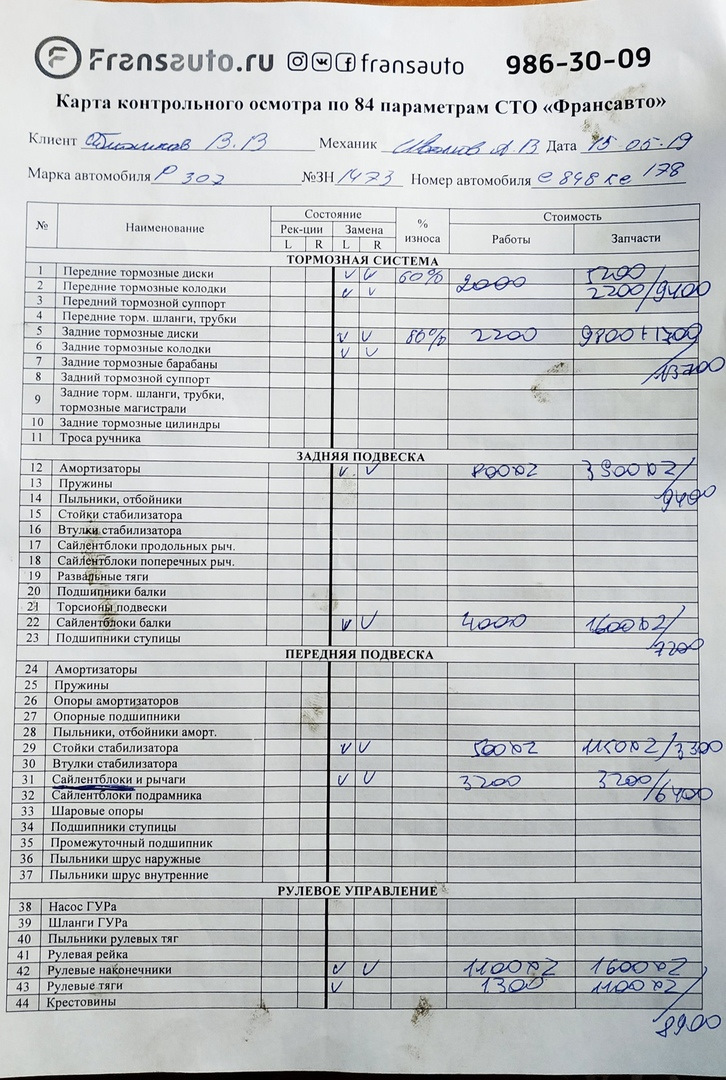 Fransauto.ru fransauto 986-30-09
Карта контрольного осмотра по 84 параметрам СТО «Франсавто»
Клиент В.В Механик Иванов А.В Дата 15-05-19
Марка автомобиля Р 307 №ЗН 1473 Номер автомобиля е 848 ке 178
№ Наименование Состояние % износа Стоимость
Рек-ции Замена Работы Запчасти
L R L R
ТОРМОЗНАЯ СИСТЕМА
1 Передние тормозные диски v v 60% 2000 5200
2 Передние тормозные колодки v v 2200/9400
3 Передний тормозной суппорт
4 Передние торм. шланги, трубки
5 Задние тормозные диски v v 80% 2200 9800+1700
6 Задние тормозные колодки v v
7 Задние тормозные барабаны /13700
8 Задний тормозной суппорт
9 Задние торм. шланги, трубки,
тормозные магистрали
10 Задние тормозные цилиндры
11 Троса ручника
ЗАДНЯЯ ПОДВЕСКА
12 Амортизаторы v v 800x2 3900x2/
13 Пружины
14 Пыльники, отбойники 9400
15 Стойки стабилизатора
16 Втулки стабилизатора
17 Сайлентблоки продольных рыч.
18 Сайлентблоки поперечных рыч.
19 Развальные тяги
20 Подшипники балки
21 Торсионы подвески
22 Сайлентблоки балки v v 4000 1600x2/
23 Подшипники ступицы 7200
ПЕРЕДНЯЯ ПОДВЕСКА
24 Амортизаторы
25 Пружины
26 Опоры амортизаторов
27 Опорные подшипники
28 Пыльники, отбойники аморт.
29 Стойки стабилизатора v v 500x2 1150x2/3300
30 Втулки стабилизатора
31 Сайлентблоки и рычаги v v 3200 3200/6400
32 Сайлентблоки подрамника
33 Шаровые опоры
34 Подшипники ступицы
35 Промежуточный подшипник
36 Пыльники шрус наружные
37 Пыльники шрус внутренние
РУЛЕВОЕ УПРАВЛЕНИЕ
38 Насос ГУРа
39 Шланги ГУРа
40 Пыльники рулевых тяг
41 Рулевая рейка
42 Рулевые наконечники v v 1100x2 1600x2
43 Рулевые тяги v 1300 1100x2
44 Крестовины /8900